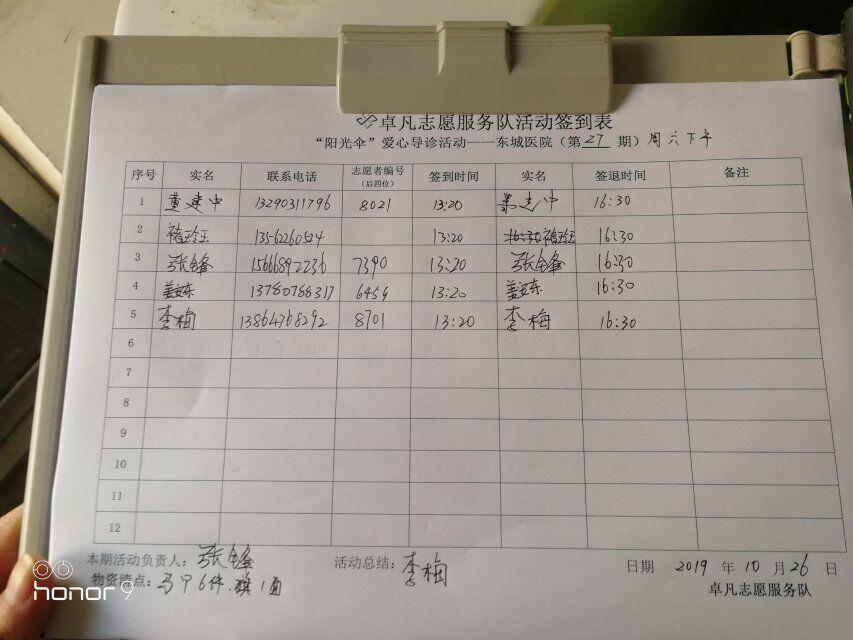 卓凡志愿服务队活动签到表
“阳光伞”爱心导诊活动——东城医院（第27期）周六下午
序号 实名 联系电话 志愿者编号（后四位） 签到时间 实名 签退时间 备注
1 黄建中 13290311796 8021 13:20 黄建中 16:30
2 13:20 16:30
3 张锋 15666892236 7390 13:20 张锋 16:30
4 13780788317 6454 13:20 16:30
5 李梅 13864768292 8701 13:20 李梅 16:30
6
7
8
9
10
11
12
本期活动负责人：张锋 活动总结：李梅 日期 2019 年 10 月 26 日
物资清点：马甲6件 旗1面 卓凡志愿服务队
honor 9